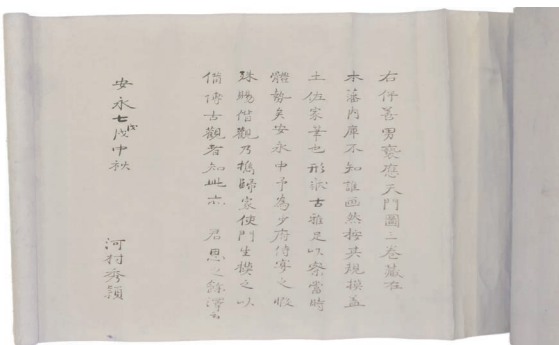 右伴善男褻應天門圖一卷藏在
本藩内庫不知誰画然按其規摸蓋
土佐家筆也形狀古雅足以察當時
體勢矣安永中予為少府侍宴之暇
殊賜借觀乃携歸家使門生摸之以
備傳古觀者知此亦 君恩之餘澤云
安永七戊戌中秋
河村秀穎